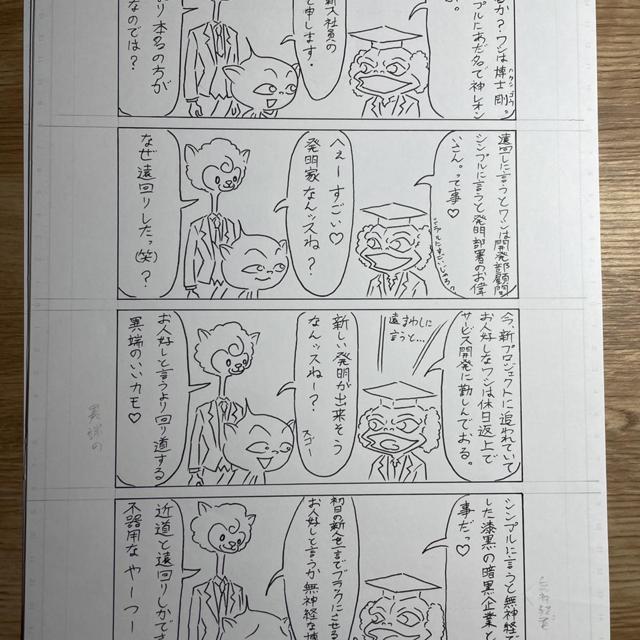 るか？ワシは博士 剛
ハクシ ゴウ
プルにあだ名で神レオン
か。
新入社員の
と申します。
り本名の方が
なのでは？
遠回しに言うとワシは開発部顧問
シンプルに言うと発明部署のお偉
いさん。って事♡
へぇーすごい♡
発明家なんッスね？
なぜ遠回りしたっ(笑)？
今、新プロジェクトに追われていて
お人好しなワシは休日返上で
サービス開発に勤しんでおる。
遠まわしに
言うと…
新しい発明が出来そう
なんッスねー？
スゴー
お人好しと言うより回り道する
異端のいいカモ♡
異端の
シンプルに言うと無神経
した漆黒の暗黒企業
事だっ♡
初日の新人
お人好しと言うか無神経な博
近道と遠回りしかでき
不器用な やーつー